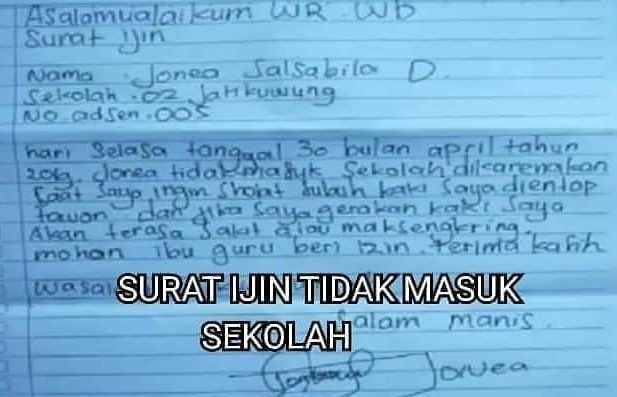 Asalamualaikum WR. Wb
Surat ijin
Nama : Jonea Salsabila D.
Sekolah : 02 Jatikuwung
No. adsen. 005
hari Selasa tanggal 30 bulan april tahun
2019. Jonea tidak masuk Sekolah dikarenakan
Saat Saya ingin Sholat subuh kaki Saya dientop
tawon dan jika Saya gerakan kaki Saya
Akan terasa Sakit atau maksengkring.
mohon ibu guru beri izin. terima kasih
Wasal
SURAT IJIN TIDAK MASUK
SEKOLAH
Salam manis.
Jonea